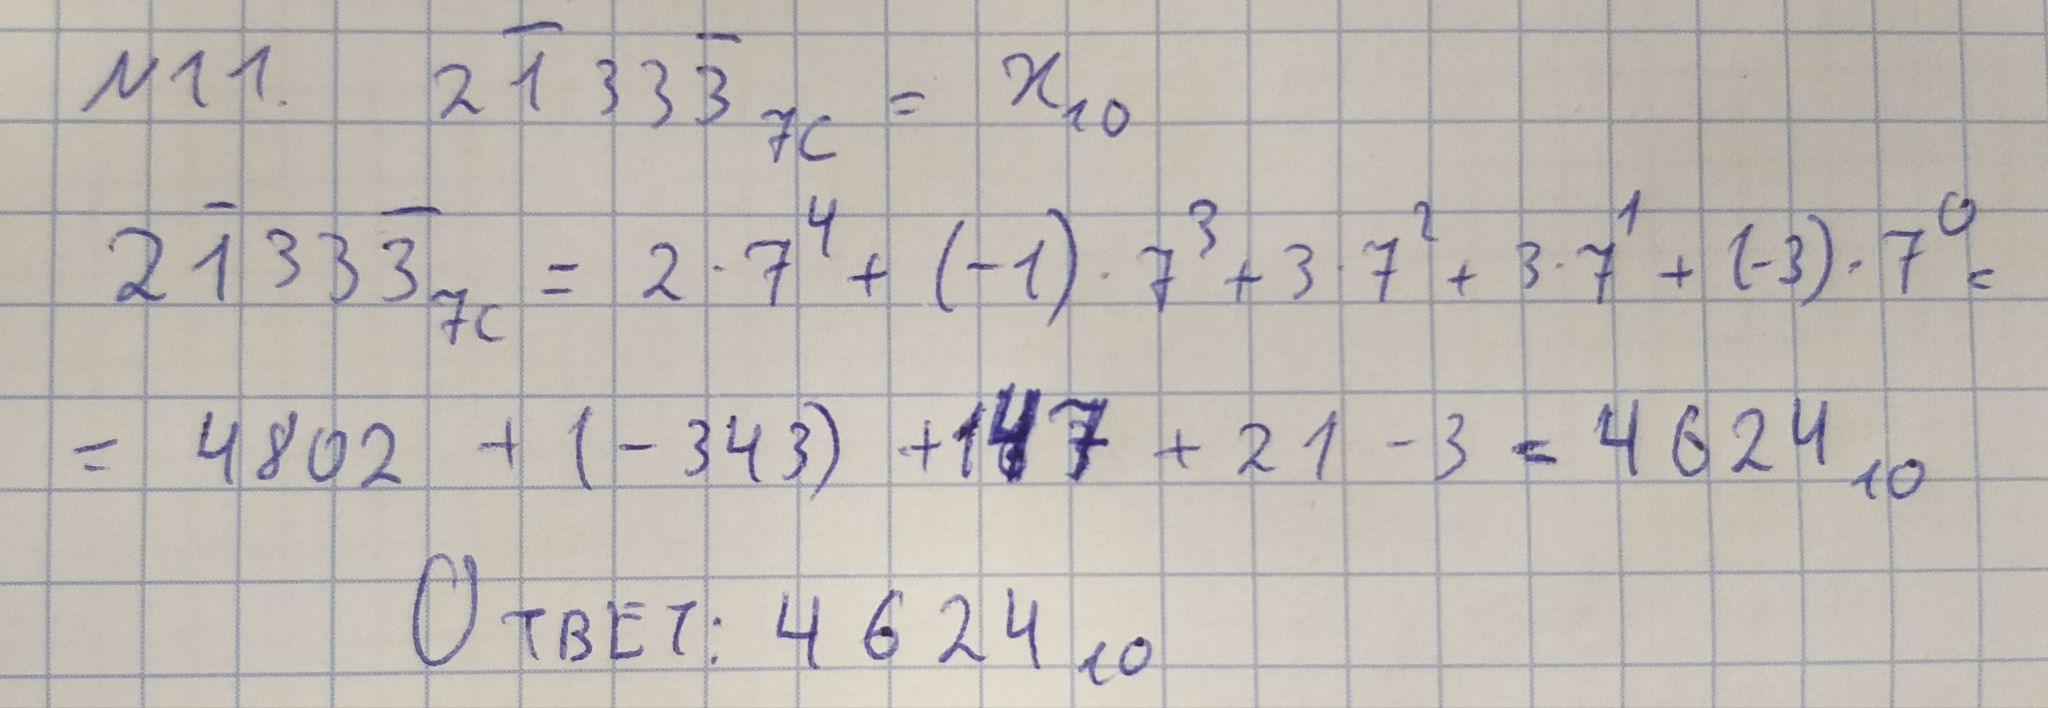 №11. 21̅333̅₇с = x₁₀
21̅333̅₇с = 2·7⁴ + (-1)·7³ + 3·7² + 3·7¹ + (-3)·7⁰ =
= 4802 + (-343) + 147 + 21 - 3 = 4624₁₀
Ответ: 4624₁₀